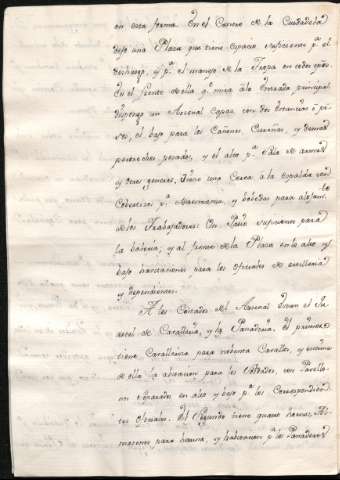 en esta forma. En el Centro de la Ciudadela
dejo una Plaza que tiene espacio suficiente p.ª el
desahogo, y p.ª el manejo de la Tropa en todos
En el frente de ella q.e mira a la Entrada principal
dispongo un Arsenal capaz con dos Estancias o pi-
sos, el bajo para los Cañones, Cureñas, y demas
pertrechos pesados, y el alto p.ª Sala de armas
y otros generos. Tiene una Cerca a la espalda con
Cobertizos p.ª Maestranza, y bobedas para alojam.to
de los Trabajadores. Un Patio suficiente para
la bateria, y al frente de la Plaza en lo alto y
bajo havitaciones para los oficiales de artilleria
y dependientes.
A los Costados del Arsenal situo el
artel de Cavalleria, y la Panaderia. El primero
tiene Cavalleriza para Cavallos, y encima
de ella la abitacion para los Soldados, con Pavello-
nes separados en alto y bajo p.ª los Correspondien-
tes oficiales. El Segundo tiene quatro hornos, Al-
macenes para harina, y havitacion p.ª Panaderos